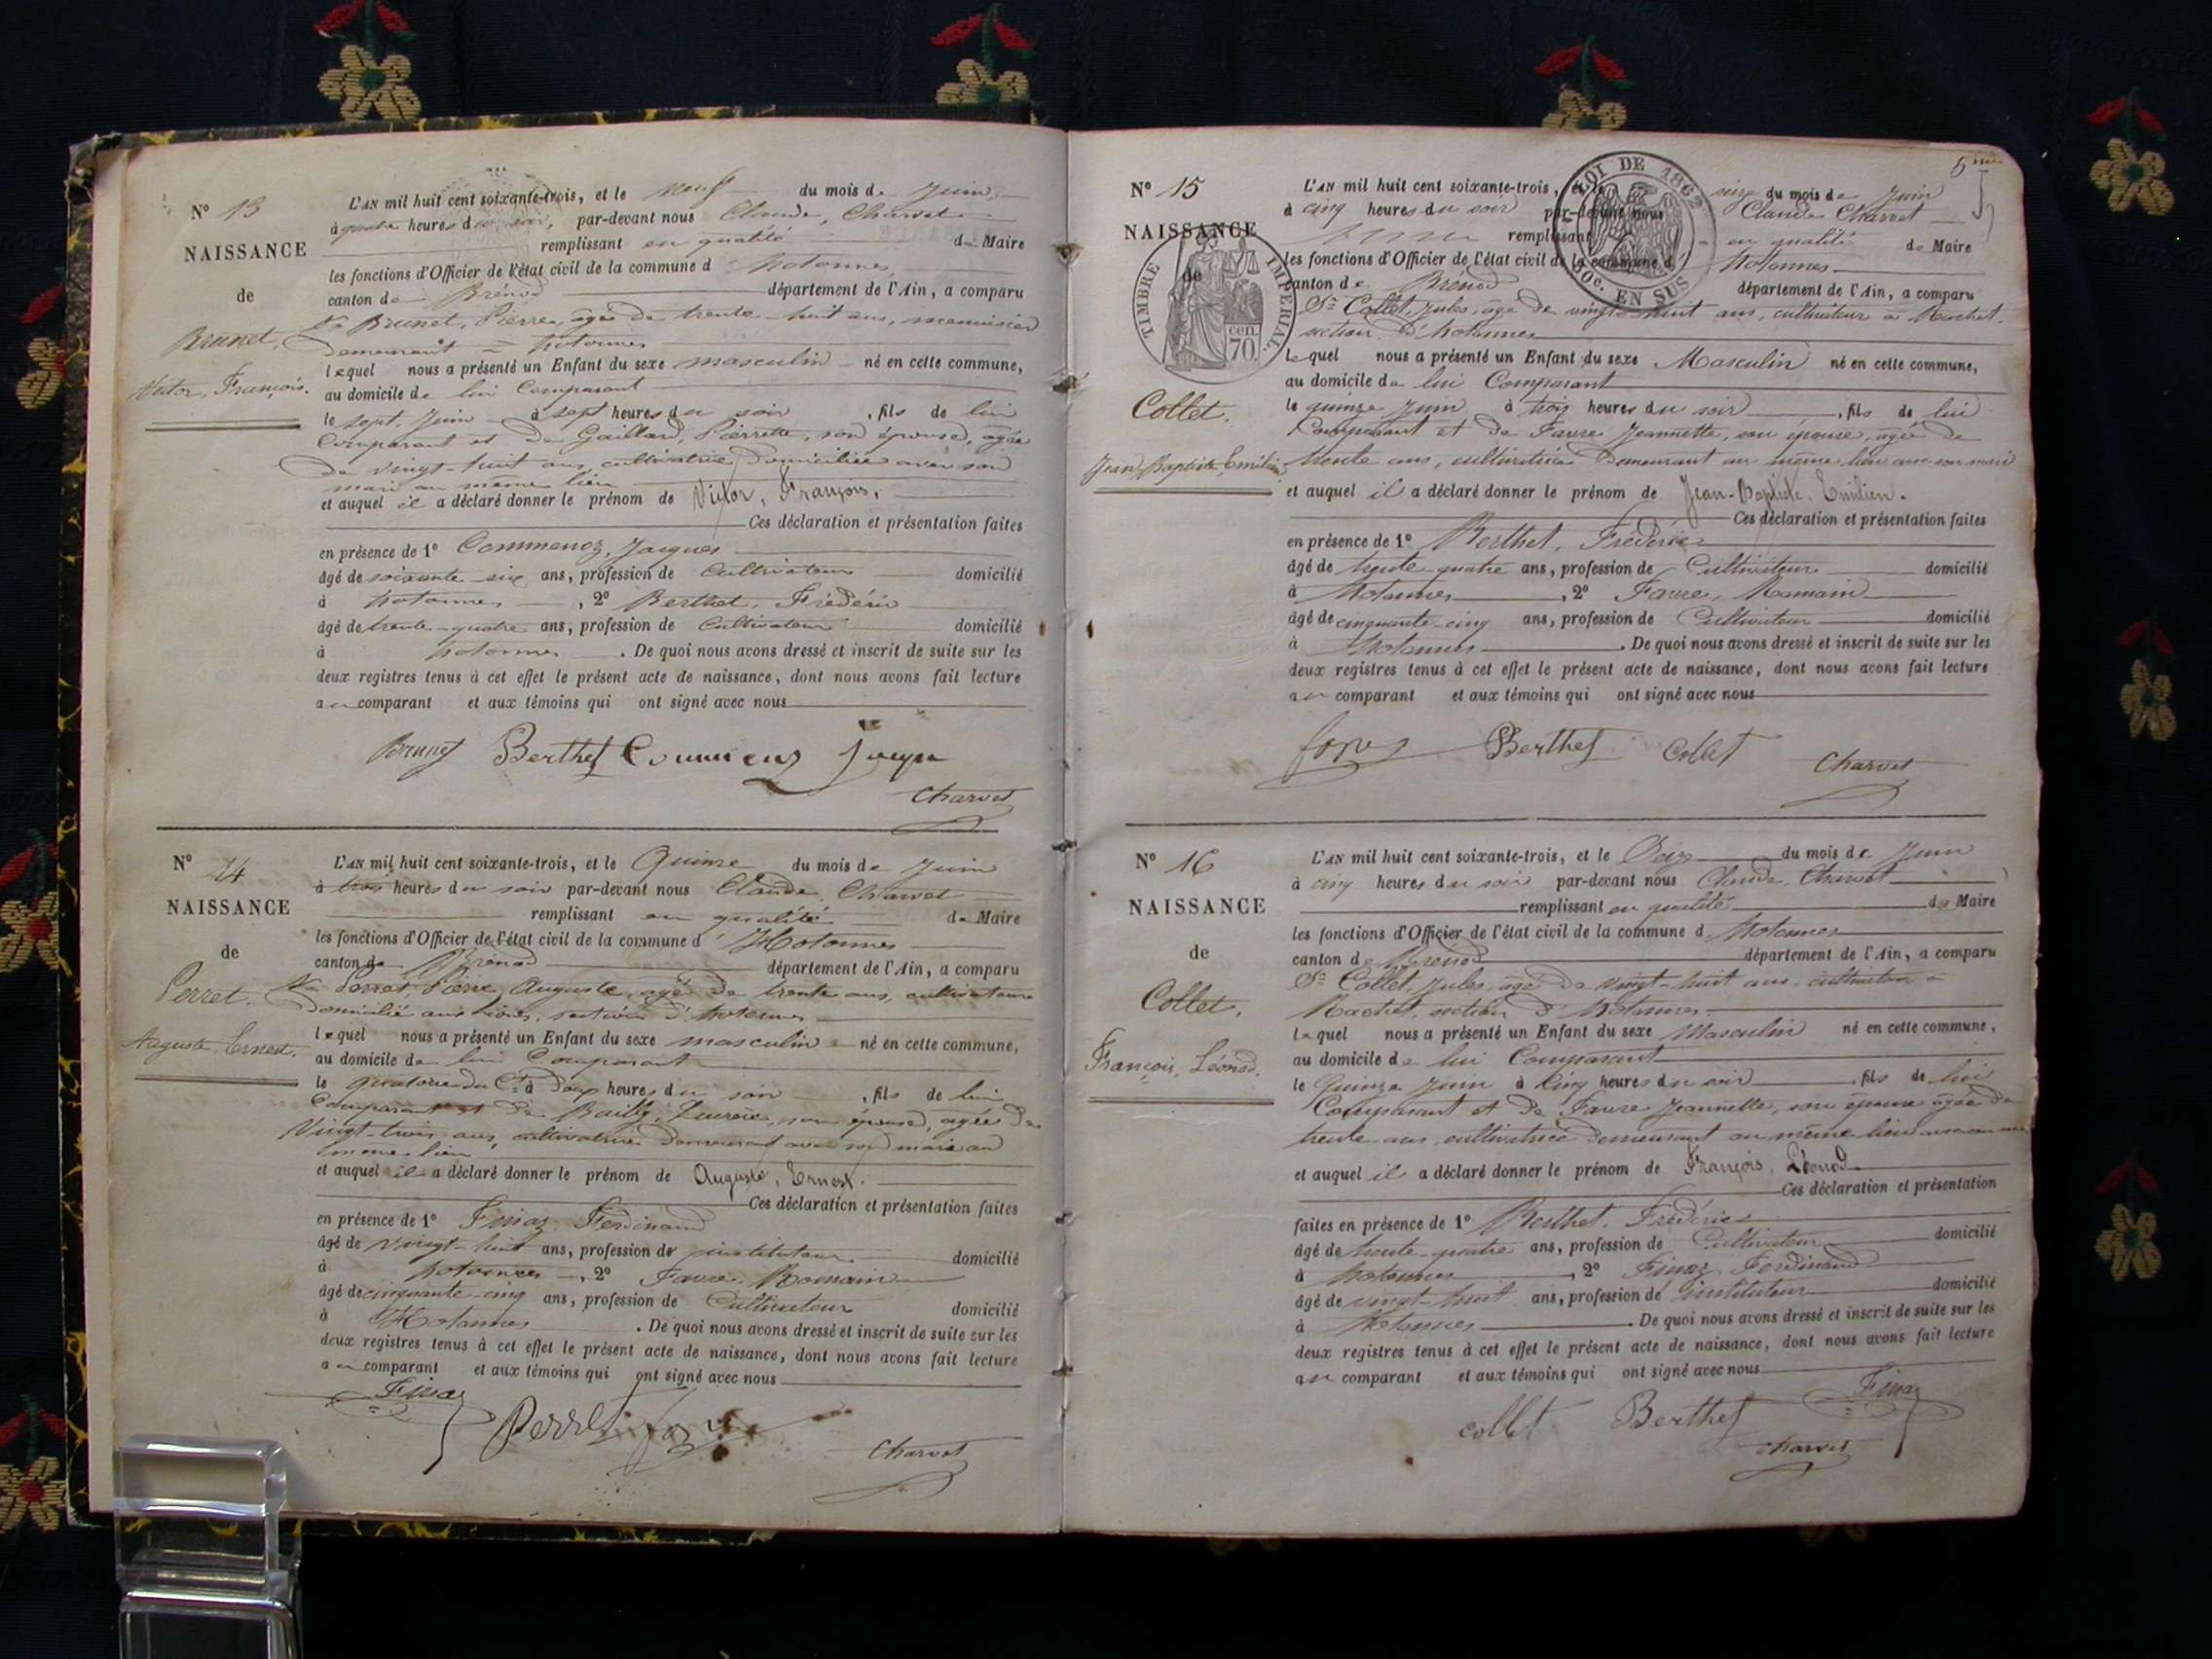 N° 13
NAISSANCE
de
Brunet,
Victor, François.
L'AN mil huit cent soixante-trois, et le neuf du mois de Juin,
à quatre heures du soir, par-devant nous Claude, Charvet
remplissant en qualité de Maire
les fonctions d'Officier de l'état civil de la commune d'hotonnes,
canton de Brénod département de l'Ain, a comparu
Brunet, Pierre, âgé de trente-huit ans, menuisier
demeurant à hotonnes
lequel nous a présenté un Enfant du sexe masculin né en cette commune,
au domicile de lui Comparant
le sept Juin à sept heures du soir, fils de lui
Comparant et de Gaillard, Pierrette, son épouse, agée
de vingt-huit ans, cultivatrice domiciliée avec son
mari au même lieu
et auquel il a déclaré donner le prénom de Victor, François,
Ces déclaration et présentation faites
en présence de 1° Commenoz, Jacques
âgé de soixante-six ans, profession de Cultivateur domicilié
à hotonnes, 2° Berthet, Frédéric
âgé de trente-quatre ans, profession de Cultivateur domicilié
à hotonnes. De quoi nous avons dressé et inscrit de suite sur les
deux registres tenus à cet effet le présent acte de naissance, dont nous avons fait lecture
au comparant et aux témoins qui ont signé avec nous
Brunet Berthet Commenoz
Charvet
N° 14
NAISSANCE
de
Perret,
Auguste, Ernest.
L'AN mil huit cent soixante-trois, et le Quinze du mois de Juin
à trois heures du soir par-devant nous Claude, Charvet
remplissant en qualité de Maire
les fonctions d'Officier de l'état civil de la commune d'Hotonnes
canton de Brénod département de l'Ain, a comparu
Perret, Pierre, Auguste, agé de trente ans, cultivateur
domicilié aux section d'hotonnes
lequel nous a présenté un Enfant du sexe masculin né en cette commune,
au domicile de lui Comparant
le quatorze du Ct à Deux heures du soir, fils de lui
Comparant et de Bailly, son épouse, agée de
Vingt-trois ans, cultivatrice demeurant avec son mari au
même lieu
et auquel il a déclaré donner le prénom de Auguste, Ernest.
Ces déclaration et présentation faites
en présence de 1° Finaz, Ferdinand
âgé de vingt-huit ans, profession de instituteur domicilié
à hotonnes, 2° Favre, Romain
âgé de cinquante-cinq ans, profession de Cultivateur domicilié
à Hotonnes. De quoi nous avons dressé et inscrit de suite sur les
deux registres tenus à cet effet le présent acte de naissance, dont nous avons fait lecture
au comparant et aux témoins qui ont signé avec nous
Finaz
Perret
Charvet
5me
N° 15
NAISSANCE
de
TIMBRE IMPERIAL
70 cen.
LOI DE 1862
50c. EN SUS
Collet.
Jean, Baptiste, Emilien
L'AN mil huit cent soixante-trois, et le seize du mois de Juin
à cinq heures du soir par-devant nous Claude Charvet
remplissant en qualité de Maire
les fonctions d'Officier de l'état civil de la commune d'hotonnes
canton de Brénod département de l'Ain, a comparu
Sr Collet, Jules, âgé de vingt-huit ans, cultivateur à Rachet,
section d'hotonnes
lequel nous a présenté un Enfant du sexe Masculin né en cette commune,
au domicile de lui Comparant
le quinze Juin à trois heures du soir, fils de lui
Comparant et de Favre Jeannette, son épouse, agée de
trente ans, cultivatrice demeurant au même lieu avec son mari
et auquel il a déclaré donner le prénom de Jean-Baptiste, Emilien.
Ces déclaration et présentation faites
en présence de 1° Berthet, Frédéric
âgé de trente-quatre ans, profession de Cultivateur domicilié
à Hotonnes, 2° Favre, Romain
âgé de cinquante-cinq ans, profession de Cultivateur domicilié
à Hotonnes. De quoi nous avons dressé et inscrit de suite sur les
deux registres tenus à cet effet le présent acte de naissance, dont nous avons fait lecture
au comparant et aux témoins qui ont signé avec nous
Berthet Collet Charvet
N° 16
NAISSANCE
de
Collet,
François, Léonod.
L'AN mil huit cent soixante-trois, et le Seize du mois de Juin
à cinq heures du soir par-devant nous Claude, Charvet
remplissant en qualité de Maire
les fonctions d'Officier de l'état civil de la commune d'Hotonnes
canton de Brénod département de l'Ain, a comparu
Sr Collet, Jules, âgé de vingt-huit ans, cultivateur à
Rachet, section d'Hotonnes.
lequel nous a présenté un Enfant du sexe Masculin né en cette commune,
au domicile de lui Comparant
le Quinze Juin à Cinq heures du soir, fils de lui
Comparant et de Favre Jeannette, son épouse âgée de
trente-ans, cultivatrice demeurant au même lieu avec son mari
et auquel il a déclaré donner le prénom de François, Léonod
Ces déclaration et présentation
faites en présence de 1° Berthet, Frédéric
âgé de trente-quatre ans, profession de Cultivateur domicilié
à hotonnes, 2° Finaz Ferdinand
âgé de vingt-huit ans, profession de instituteur domicilié
à Hotonnes. De quoi nous avons dressé et inscrit de suite sur les
deux registres tenus à cet effet le présent acte de naissance, dont nous avons fait lecture
au comparant et aux témoins qui ont signé avec nous
Collet Berthet Finaz
Charvet